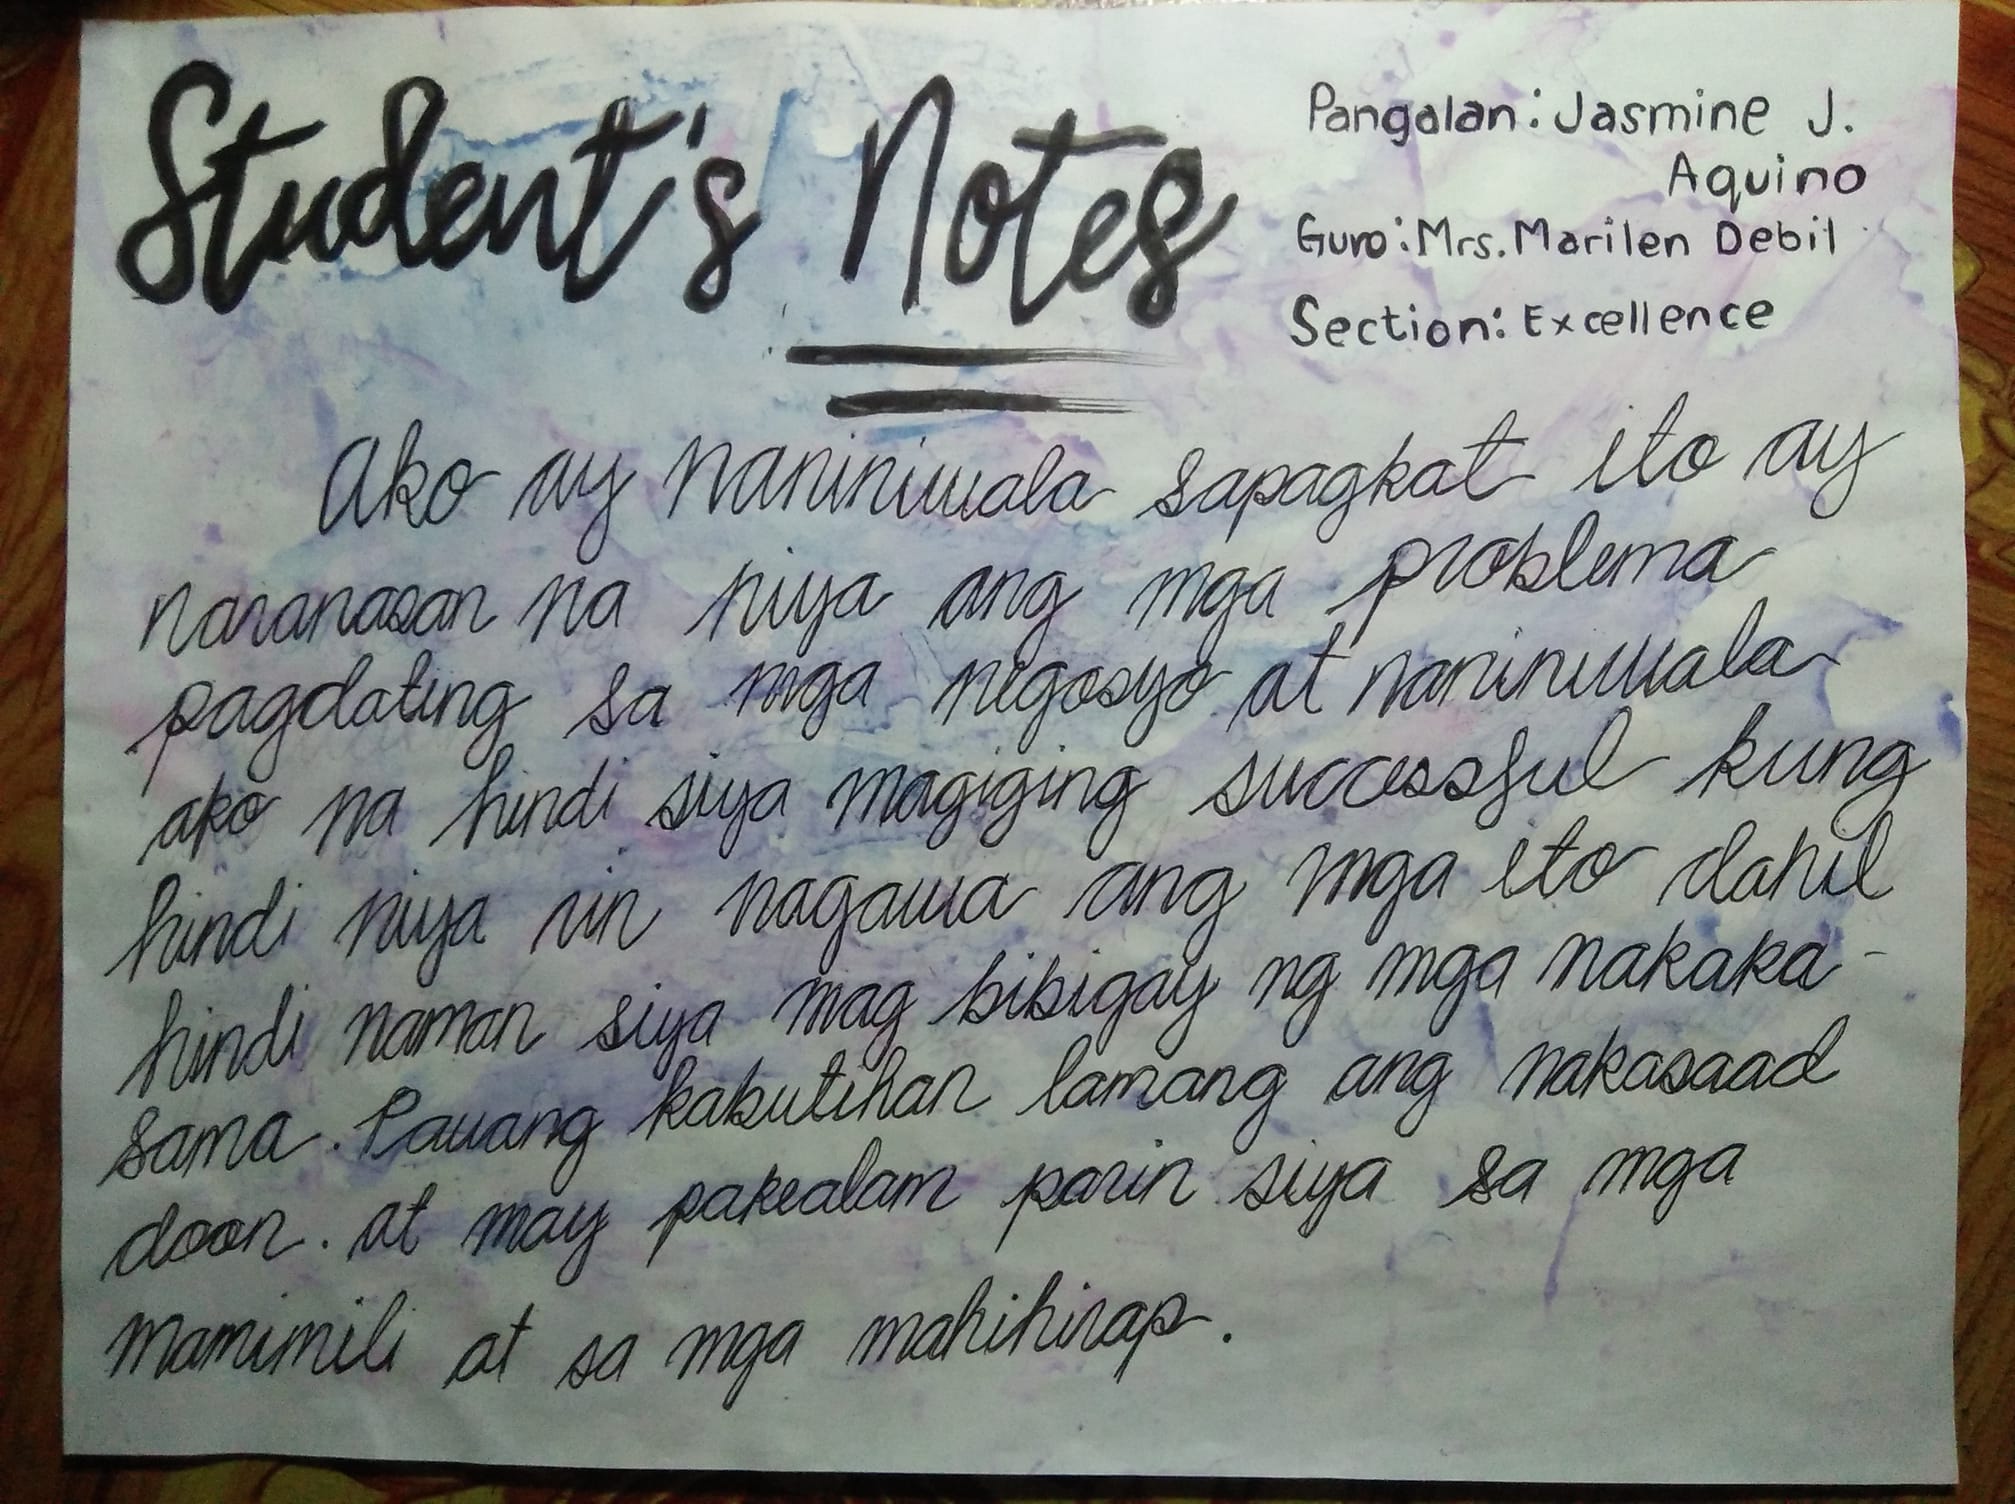 Student's Notes
Pangalan: Jasmine J.
Aquino
Guro: Mrs. Marilen Debil
Section: Excellence
Ako ay naniniwala sapagkat ito ay
naranasan na niya ang mga problema
pagdating sa mga negosyo at naniniwala
ako na hindi siya magiging successful kung
hindi niya rin nagawa ang mga ito dahil
hindi naman siya mag bibigay ng mga nakaka-
sama. Pawang kabutihan lamang ang nakasaad
doon. at may pakealam parin siya sa mga
mamimili at sa mga mahihirap.